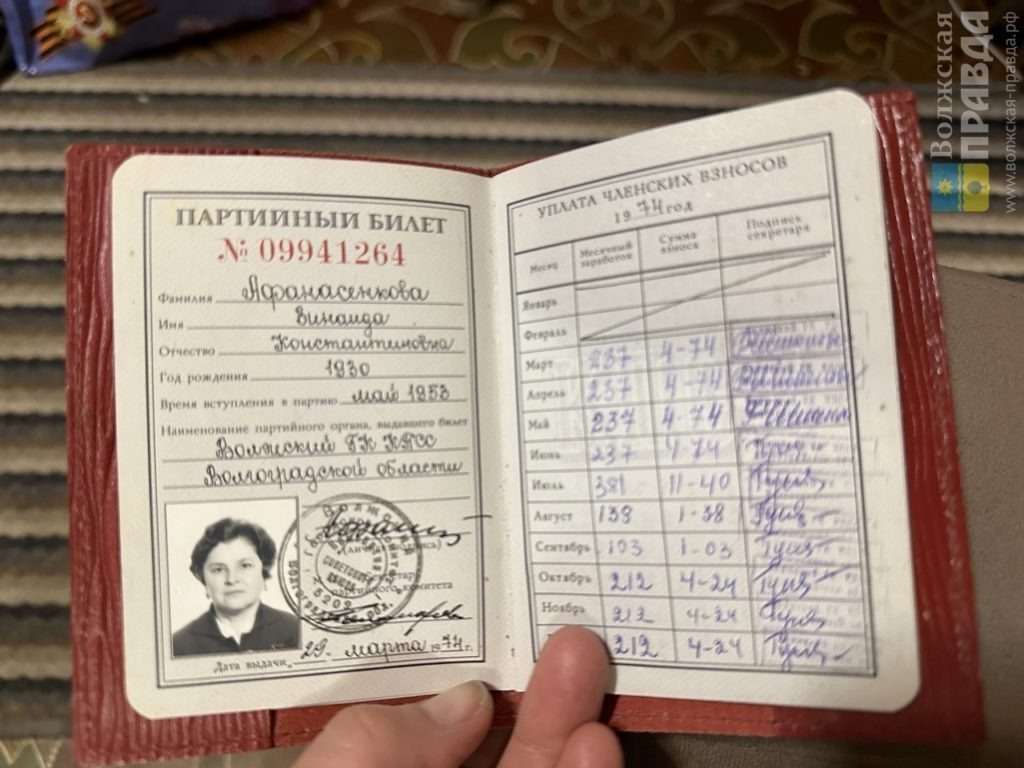 Волжская
ПРАВДА
www.волжская-правда.рф
ПАРТИЙНЫЙ БИЛЕТ
№ 09941264
Фамилия Афанасенкова
Имя Зинаида
Отчество Константиновна
Год рождения 1930
Время вступления в партию май 1953
Наименование партийного органа, выдавшего билет
Волжский ГК КПСС
Волгоградской области
(личная подпись)
Дата выдачи „29. марта 1974 г.
УПЛАТА ЧЛЕНСКИХ ВЗНОСОВ
1974 год
Месяц Месячный заработок Сумма взноса Подпись секретаря
Январь
Февраль
Март 237 4-74
Апрель 237 4-74
Май 237 4-74
Июнь 237 4-74
Июль 381 11-40
Август 138 1-38
Сентябрь 103 1-03
Октябрь 212 4-24
Ноябрь 212 4-24
212 4-24